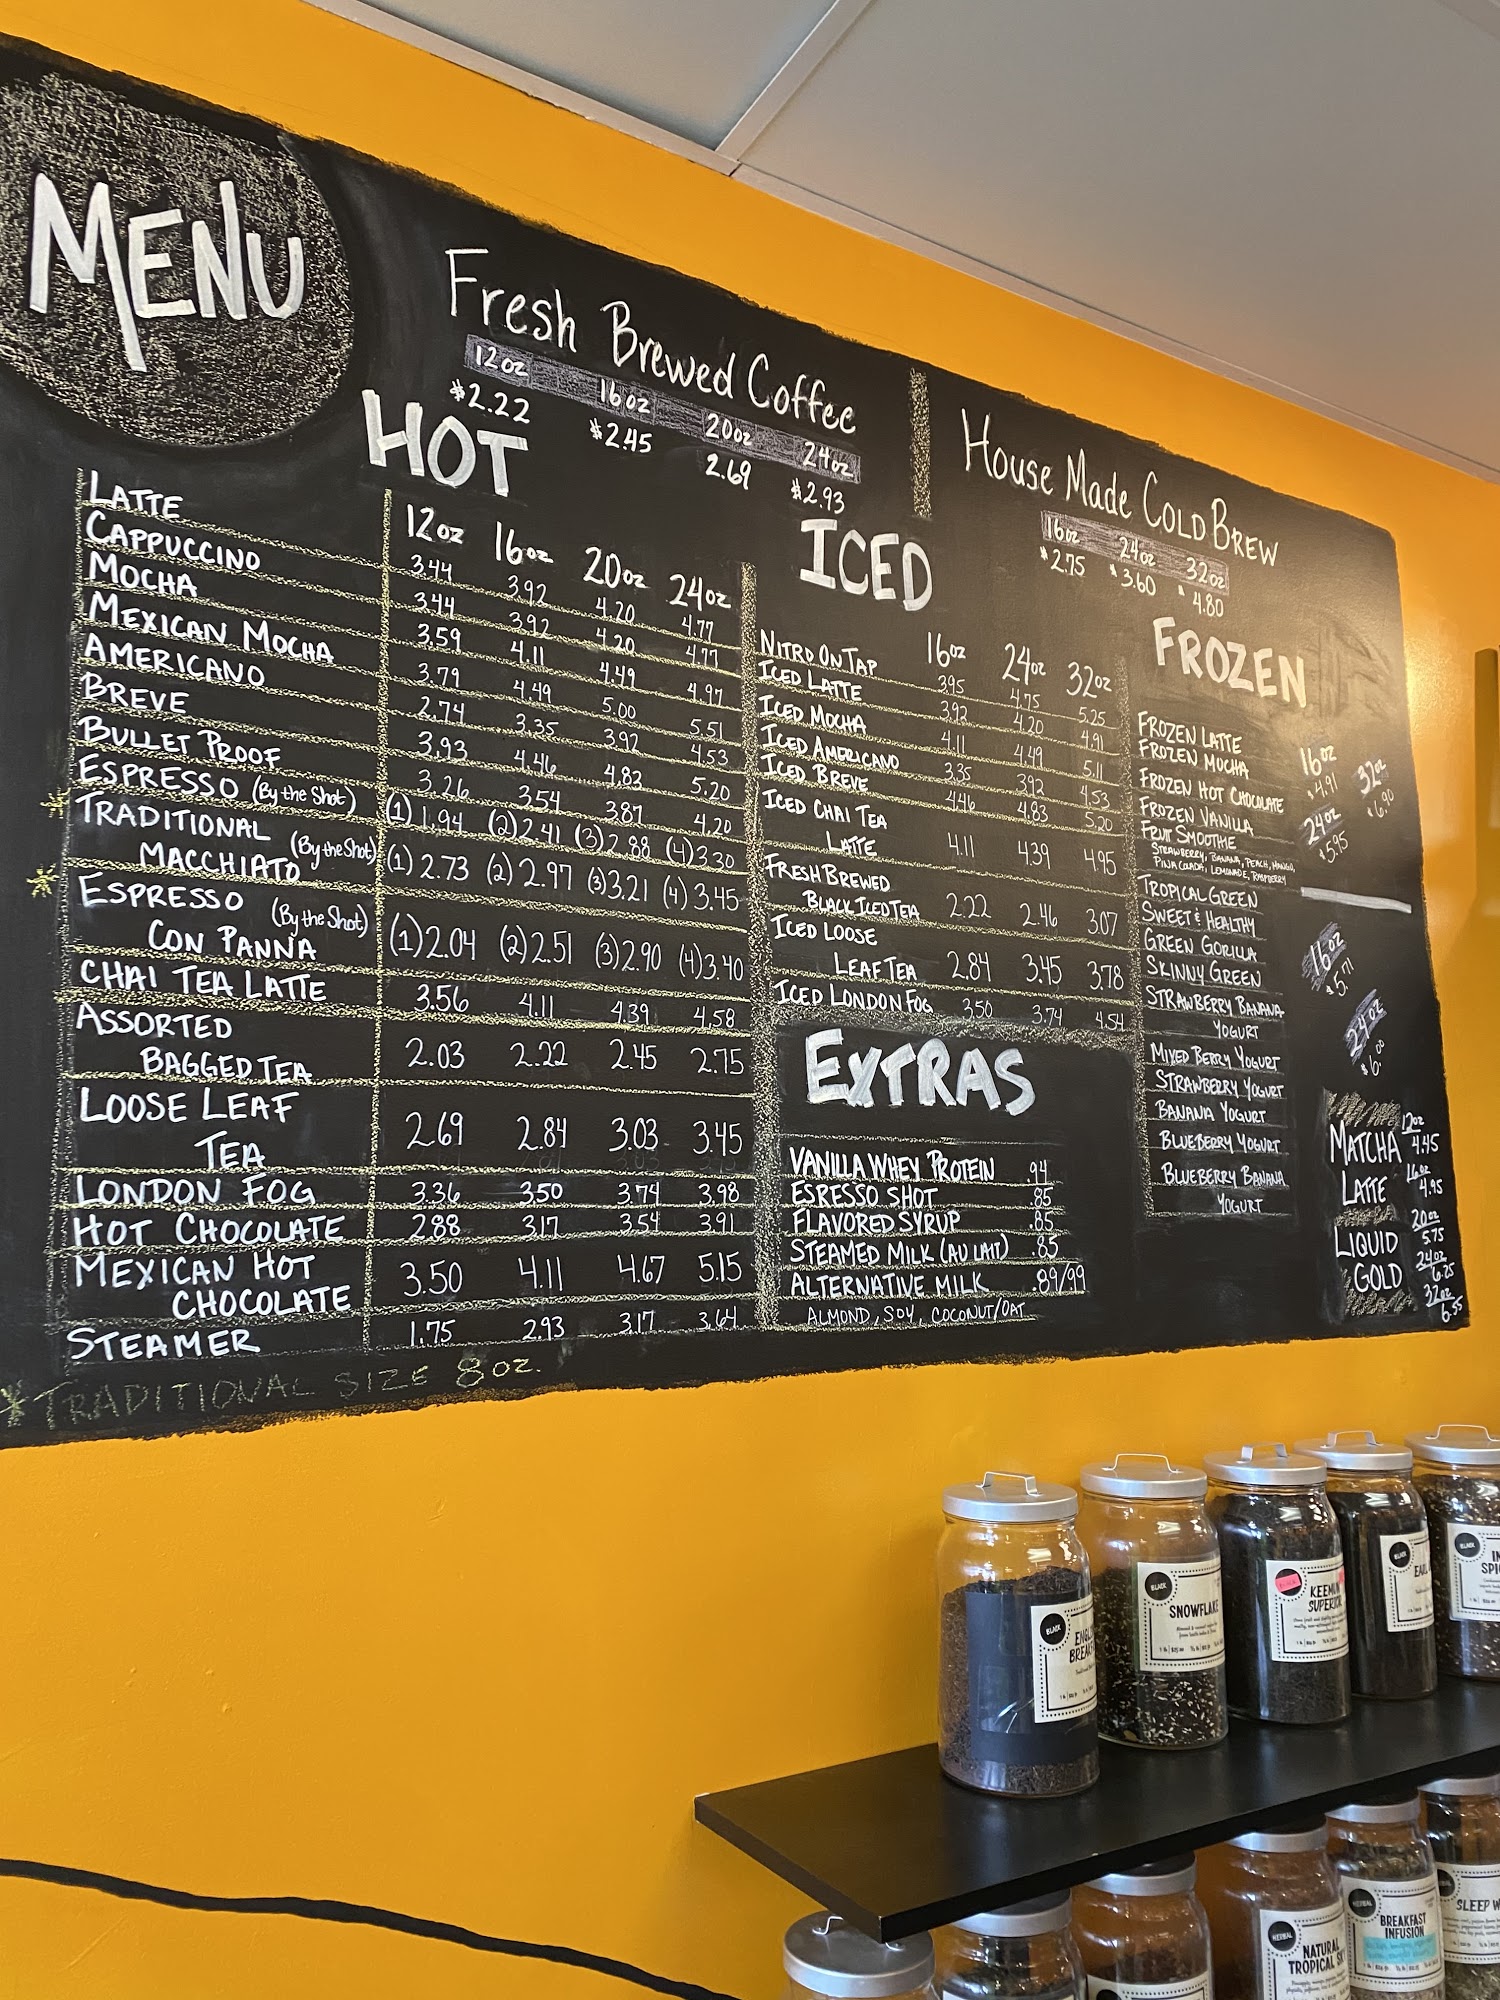 MENU
Fresh Brewed Coffee
12oz 16oz 20oz 24oz
$2.22 $2.45 2.69 $2.93
House Made Cold Brew
16oz 24oz 32oz
$2.75 $3.60 4.80
HOT
12oz 16oz 20oz 24oz
LATTE 3.44 3.92 4.20 4.77
CAPPUCCINO 3.44 3.92 4.20 4.77
MOCHA 3.59 4.11 4.49 4.97
MEXICAN MOCHA 3.79 4.49 5.00 5.51
AMERICANO 2.74 3.35 3.92 4.53
BREVE 3.93 4.46 4.83 5.20
BULLET PROOF 3.26 3.54 3.87 4.20
ESPRESSO (By the Shot) (1) 1.94 (2) 2.41 (3) 2.88 (4) 3.30
TRADITIONAL
MACCHIATO (By the Shot) (1) 2.73 (2) 2.97 (3) 3.21 (4) 3.45
ESPRESSO
CON PANNA (By the Shot) (1) 2.04 (2) 2.51 (3) 2.90 (4) 3.40
CHAI TEA LATTE 3.56 4.11 4.39 4.58
ASSORTED
BAGGED TEA 2.03 2.22 2.45 2.75
LOOSE LEAF
TEA 2.69 2.84 3.03 3.45
LONDON FOG 3.36 3.50 3.74 3.98
HOT CHOCOLATE 2.88 3.17 3.54 3.91
MEXICAN HOT
CHOCOLATE 3.50 4.11 4.67 5.15
STEAMER 1.75 2.93 3.17 3.64
*TRADITIONAL SIZE 8oz.
ICED
16oz 24oz 32oz
NITRO ON TAP 3.95 4.75 5.25
ICED LATTE 3.92 4.20 4.91
ICED MOCHA 4.11 4.49 5.11
ICED AMERICANO 3.35 3.92 4.53
ICED BREVE 4.46 4.83 5.20
ICED CHAI TEA
LATTE 4.11 4.39 4.95
FRESH BREWED
BLACK ICED TEA 2.22 2.46 3.07
ICED LOOSE
LEAF TEA 2.84 3.45 3.78
ICED LONDON FOG 3.50 3.74 4.54
EXTRAS
VANILLA WHEY PROTEIN .94
ESRESSO SHOT .85
FLAVORED SYRUP .85
STEAMED MILK (AU LAIT) .85
ALTERNATIVE MILK .89/99
ALMOND, SOY, COCONUT/OAT
FROZEN
FROZEN LATTE
FROZEN MOCHA
FROZEN HOT CHOCOLATE
FROZEN VANILLA
FRUIT SMOOTHIE
STRAWBERRY, BANANA, PEACH, MANGO,
PINA COLADA, LEMONADE, RASPBERRY
16oz
$4.91
24oz
$5.95
32oz
$6.90
TROPICAL GREEN
SWEET & HEALTHY
GREEN GORILLA
SKINNY GREEN
STRAWBERRY BANANA
YOGURT
MIXED BERRY YOGURT
STRAWBERRY YOGURT
BANANA YOGURT
BLUEBERRY YOGURT
BLUEBERRY BANANA
YOGURT
16oz
$5.71
24oz
$6.00
MATCHA
LATTE
LIQUID
GOLD
12oz
4.45
16oz
4.95
20oz
5.75
24oz
6.25
32oz
6.55
BLACK
BLACK
SNOWFLAKE
SUPERIOR
BLACK
BLACK
HERBAL
NATURAL
TROPICAL
HERBAL
BREAKFAST
INFUSION
SLEEP